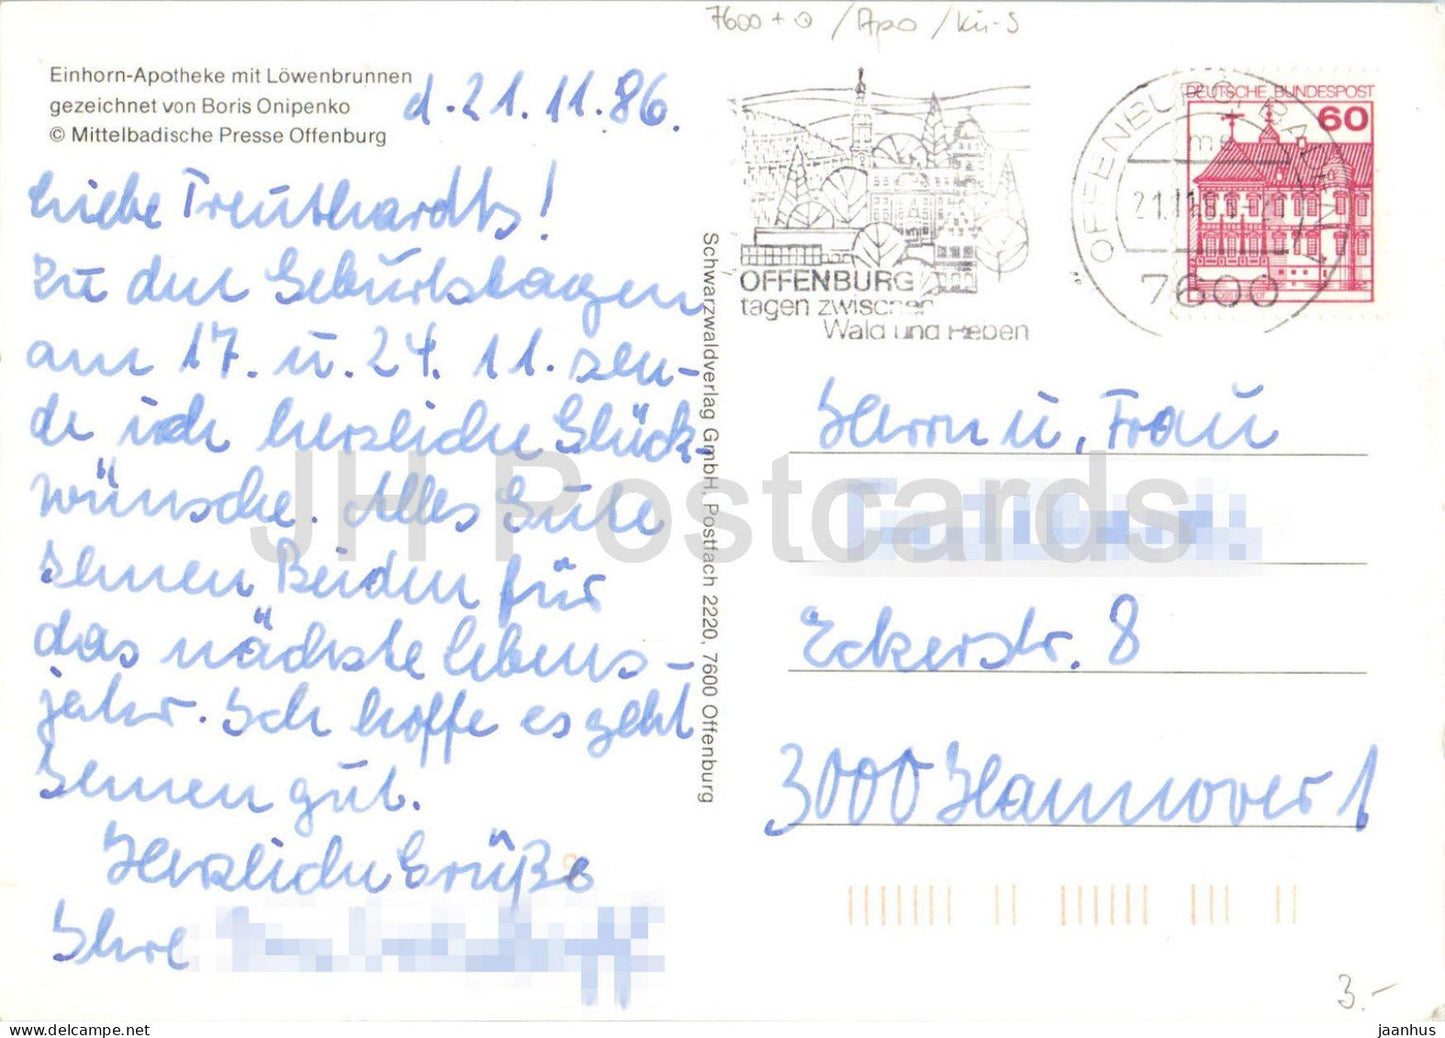 7600 + ⊙ / Apo / Kü-S
Einhorn-Apotheke mit Löwenbrunnen
gezeichnet von Boris Onipenko
© Mittelbadische Presse Offenburg
d. 21. 11. 86.
Liebe Treuthardts!
Zu den Geburtstagen
am 17. u. 24. 11. sen-
de ich herzliche Glück-
wünsche. Alles Gute
Ihnen Beiden für
das nächste Lebens-
jahr. Ich hoffe es geht
Ihnen gut.
Herzliche Grüße
Ihre
Schwarzwaldverlag GmbH, Postfach 2220, 7600 Offenburg
OFFENBURG
tagen zwischen
Wald und Reben
OFFENBURG, BADEN
21.11.86
7600
DEUTSCHE BUNDESPOST
60
Herrn u. Frau
Eckerstr. 8
3000 Hannover 1
JH Postcards
3.-
jaanhus @ delcampe.net